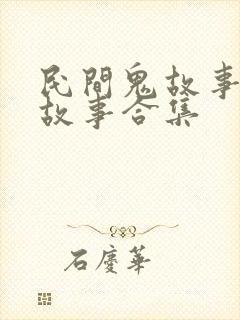 民間鬼故事
故事合集
石慶華